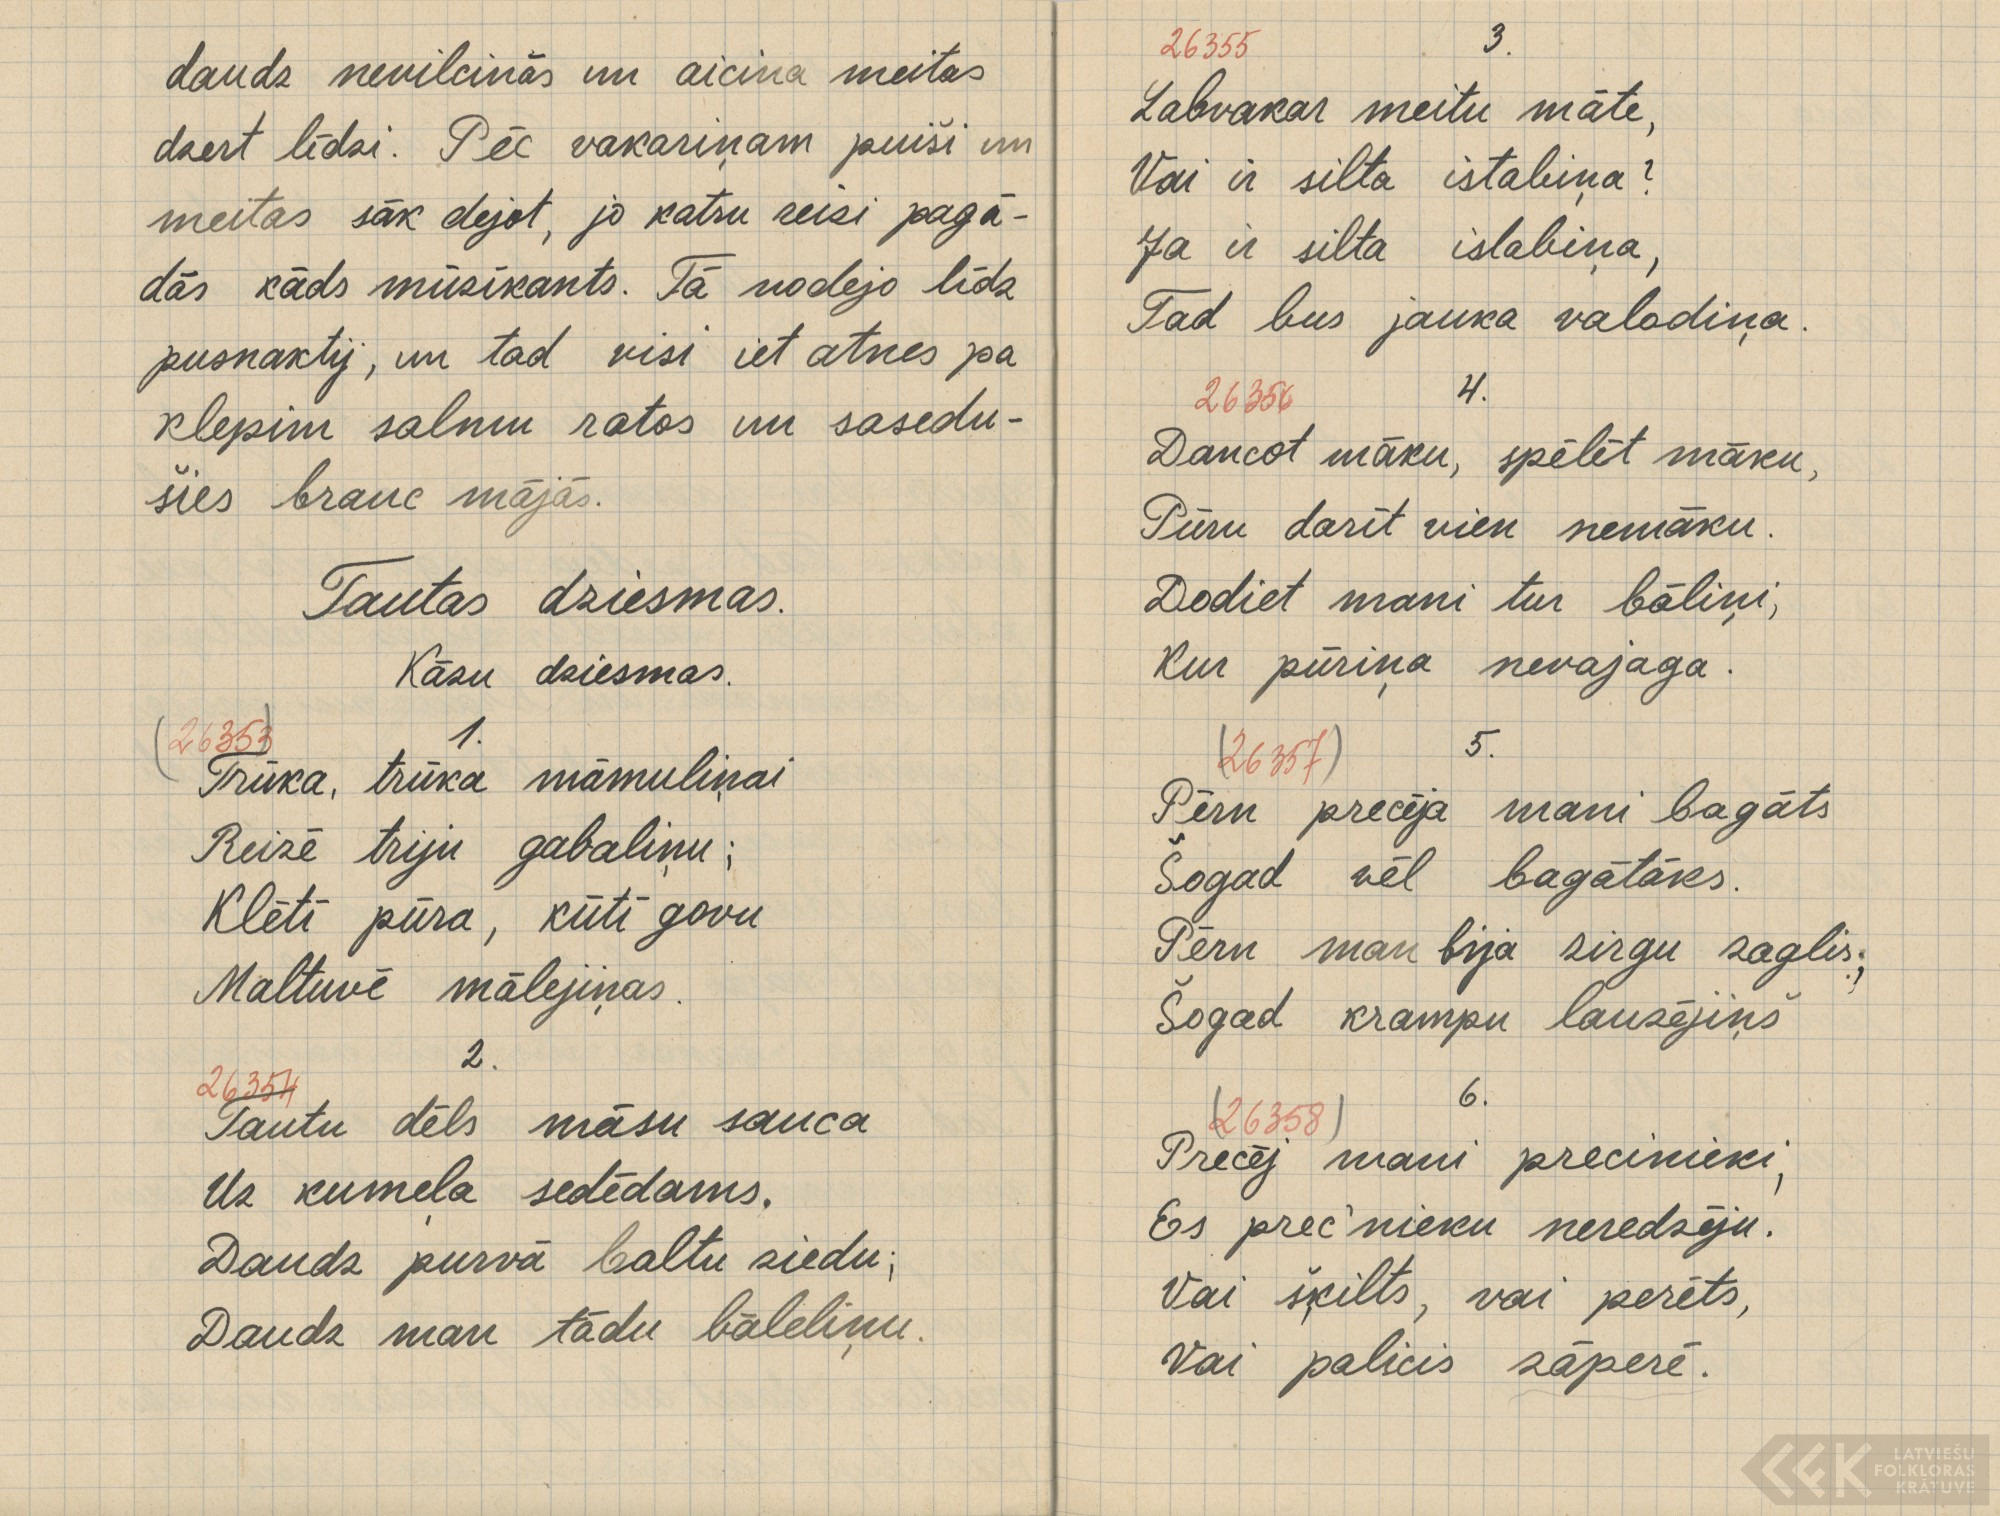 daudz nevilcinās un aicina meitas
dzert līdzi. Pēc vakariņam puiši un
meitas sāk dejot, jo katru reizi pagā-
dās kāds mūzikants. Tā nodejo līdz
pusnaktij, un tad visi iet atnes pa
klepim salmu ratos un sasedu-
šies brauc mājās.
Tautas dziesmas.
Kāzu dziesmas.
(26353) 1.
Trūka, trūka māmuliņai
Reizē triju gabaliņu;
Klētī pūra, kūtī govu
Maltuvē mālējiņas.
2.
26354
Tautu dēls māsu sauca
Uz kumeļa sedēdams.
Daudz purvā baltu ziedu;
Daudz man tādu bāleliņu.
26355 3.
Labvakar meitu māte,
Vai ir silta istabiņa?
Ja ir silta istabiņa,
Tad bus jauka valodiņa.
26356 4.
Dancot māku, spēlēt māku,
Pūru darīt vien nemāku.
Dodiet mani tur bāliņi,
Kur pūriņa nevajaga.
(26357) 5.
Pērn precēja mani bagāts
Šogad vēl bagātāks.
Pērn man bija zirgu zaglis;
Šogad krampu lauzējiņš
(26358) 6.
Precēj mani precinieki,
Es prec'nieku neredzēju.
Vai šķilts, vai perēts,
Vai palicis zāperē.
LATVIEŠU
FOLKLORAS
KRĀTUVE